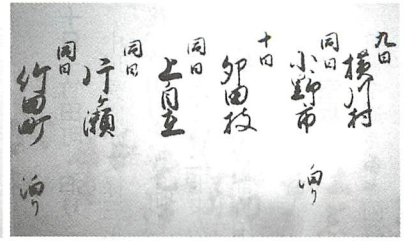 九日
横川村
同日
小野市 泊り
十日
卯田枝
同日
上自在
同日
片ヶ瀬
同日
竹田町 泊り